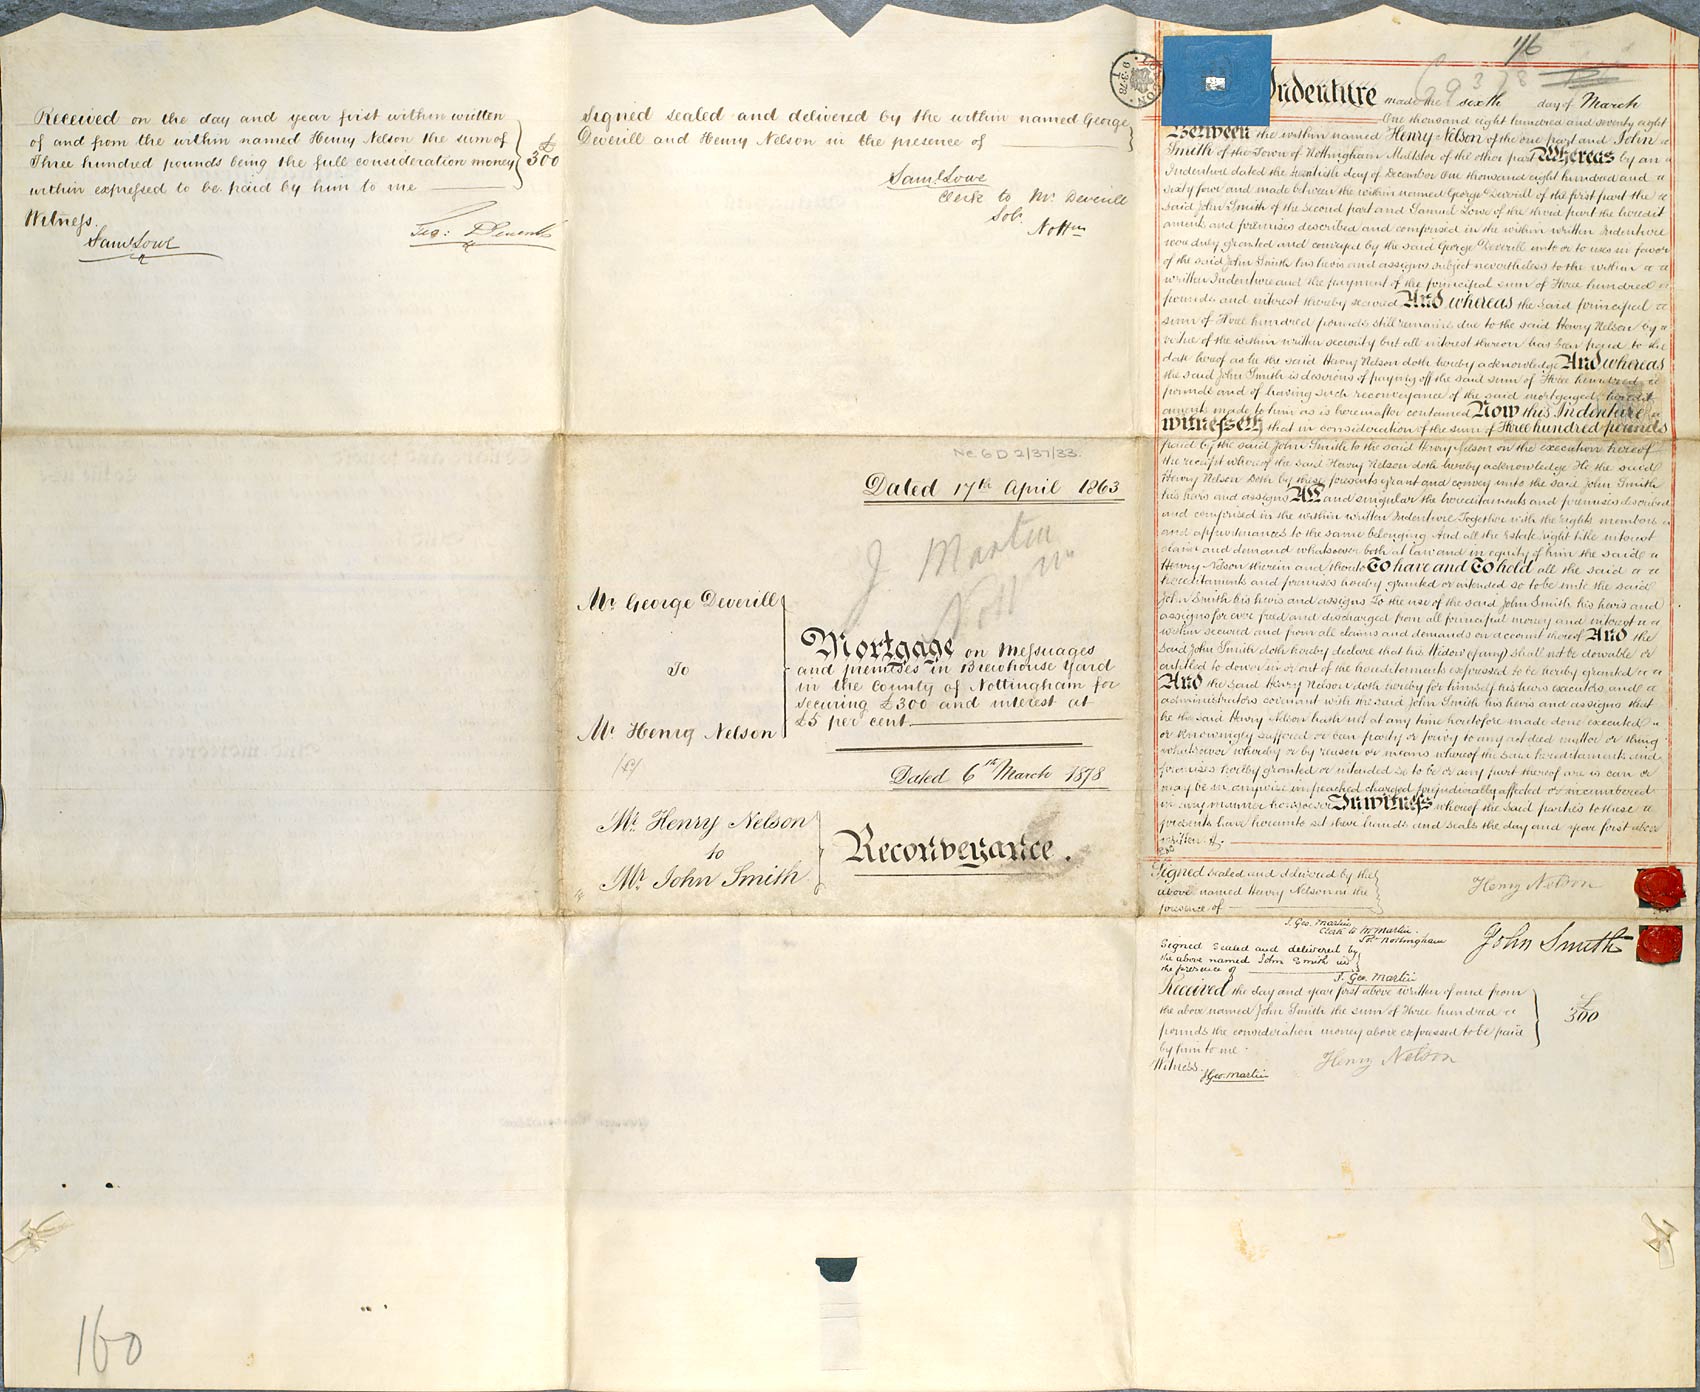 Received on the day and year first within written
of and from the within named Henry Nelson the sum of
Three hundred pounds being the full consideration money
within expressed to be paid by him to me
£
300
Witness.
Saml Lowe
Geo: Deverill
Signed sealed and delivered by the within named George
Deverill and Henry Nelson in the presence of
Saml Lowe
Clerk to Mr Deverill
Solr
Nottm
Ne 6 D 2/37/33.
Dated 17th April 1863
J Martin
Nottm
Mr George Deverill
To
Mr Henry Nelson
Mortgage on Messuages
and premises in Brewhouse Yard
in the County of Nottingham for
securing £300 and interest at
£5 per cent
Dated 6th March 1878
Mr Henry Nelson
to
Mr John Smith
Reconveyance.
160
Indenture made the sixth day of March
One thousand eight hundred and seventy eight
Between the within named Henry Nelson of the one part and John
Smith of the Town of Nottingham Maltster of the other part Whereas by an
Indenture dated the twentieth day of December One thousand eight hundred and
sixty four and made between the within named George Deverill of the first part the
said John Smith of the second part and Samuel Lowe of the third part the heredit
aments and premises described and comprised in the within written Indenture
were duly granted and conveyed by the said George Deverill unto or to uses in favor
of the said John Smith his heirs and assigns subject nevertheless to the within
written Indenture and the payment of the principal sum of Three hundred
pounds and interest thereby secured And whereas the said principal
sum of Three hundred pounds still remains due to the said Henry Nelson by
virtue of the within written security but all interest thereon has been paid to the
date hereof as he the said Henry Nelson doth hereby acknowledge And whereas
the said John Smith is desirous of paying off the said sum of Three hundred
pounds and of having such reconveyance of the said mortgaged heredit
aments made to him as is hereinafter contained Now this Indenture
witnesseth that in consideration of the sum of Three hundred pounds
paid by the said John Smith to the said Henry Nelson on the execution hereof
the receipt whereof the said Henry Nelson doth hereby acknowledge He the said
Henry Nelson Doth by these presents grant and convey unto the said John Smith
his heirs and assigns All and singular the hereditaments and premises described
and comprised in the within written Indenture Together with the rights members
and appurtenances to the same belonging And all the Estate right title interest
claim and demand whatsoever both at law and in equity of him the said
Henry Nelson therein and thereto To have and To hold all the said
hereditaments and premises hereby granted or intended so to be unto the said
John Smith his heirs and assigns To the use of the said John Smith his heirs and
assigns for ever freed and discharged from all principal money and interest
within secured and from all claims and demands on account thereof And the
said John Smith doth hereby declare that his Widow (if any) shall not be dowable or
entitled to dower in or out of the hereditaments expressed to be hereby granted
And the said Henry Nelson doth hereby for himself his heirs executors and
administrators covenant with the said John Smith his heirs and assigns that
he the said Henry Nelson hath not at any time heretofore made done executed
or knowingly suffered or been party or privy to any act deed matter or thing
whatsoever whereby or by reason or means whereof the said hereditaments and
premises hereby granted or intended so to be or any part thereof are is can or
may be in anywise impeached charged prejudicially affected or incumbered
in any manner howsoever In witness whereof the said parties to these
presents have hereunto set their hands and seals the day and year first above
written
Signed sealed and delivered by the
above named Henry Nelson in the
presence of
Henry Nelson
J. Geo. Martin
Clerk to Mr Martin
Solr Nottingham
Signed Sealed and delivered by
the above named John Smith in
the presence of
John Smith
J. Geo. Martin
Received the day and year first above written of and from
the above named John Smith the sum of Three hundred
pounds the consideration money above expressed to be paid
by him to me.
£
300
Henry Nelson
Witness.
J Geo. Martin